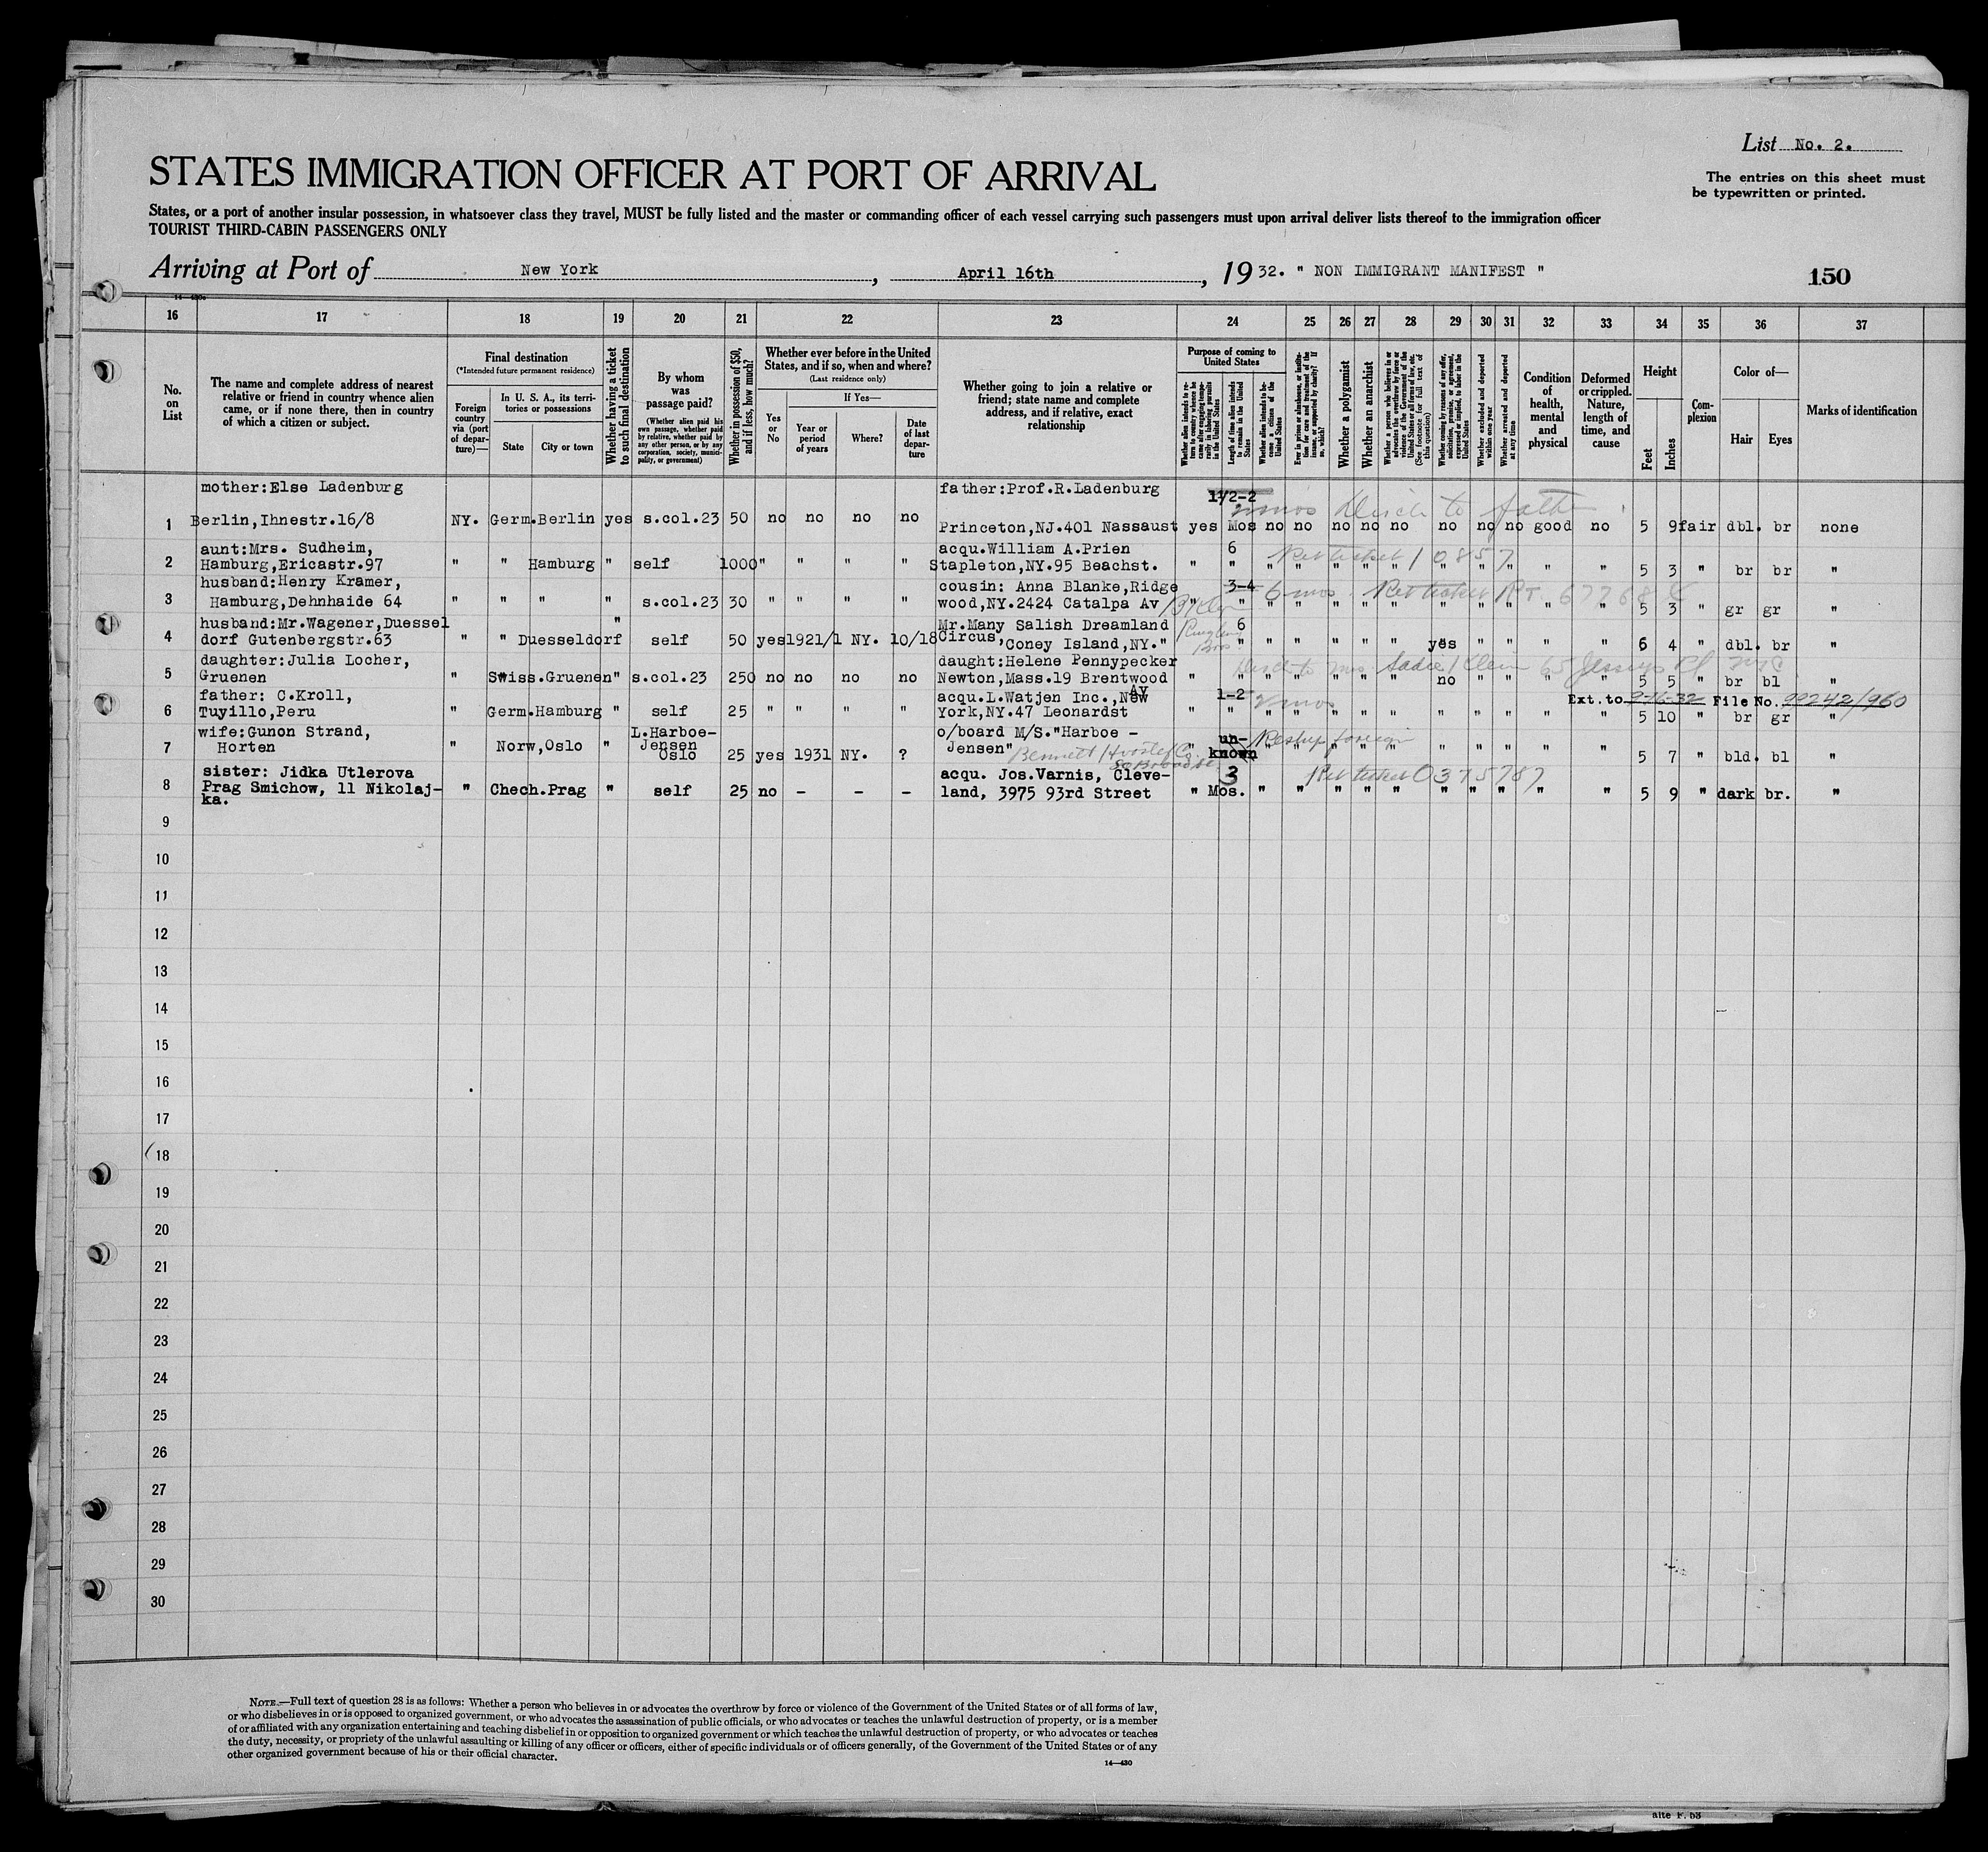 List No. 2.
STATES IMMIGRATION OFFICER AT PORT OF ARRIVAL
The entries on this sheet must
be typewritten or printed.
States, or a port of another insular possession, in whatsoever class they travel, MUST be fully listed and the master or commanding officer of each vessel carrying such passengers must upon arrival deliver lists thereof to the immigration officer
TOURIST THIRD-CABIN PASSENGERS ONLY
Arriving at Port of New York, April 16th, 1932. " NON IMMIGRANT MANIFEST " 150
16 17 18 19 20 21 22 23 24 25 26 27 28 29 30 31 32 33 34 35 36 37
No. on List
The name and complete address of nearest relative or friend in country whence alien came, or if none there, then in country of which a citizen or subject.
Final destination
(*Intended future permanent residence)
Foreign country via (port of departure)—
In U. S. A., its territories or possessions
State
City or town
Whether having a ticket to such final destination
By whom was passage paid?
(Whether alien paid his own passage, whether paid by relative, whether paid by any other person, or by any corporation, society, municipality, or government)
Whether in possession of $50, and if less, how much?
Whether ever before in the United States, and if so, when and where?
(Last residence only)
Yes or No
If Yes—
Year or period of years
Where?
Date of last departure
Whether going to join a relative or friend; state name and complete address, and if relative, exact relationship
Purpose of coming to United States
Whether alien intends to return to country whence he came after engaging temporarily in laboring pursuits in the United States
Length of time alien intends to remain in the United States
Whether alien intends to become a citizen of the United States
Ever in prison or almshouse, or institution for care and treatment of the insane, or supported by charity? If so, which?
Whether a polygamist
Whether an anarchist
Whether a person who believes in or advocates the overthrow by force or violence of the Government of the United States or all forms of law, etc. (See footnote for full text of this question)
Whether coming by reasons of any offer, solicitation, promise, or agreement, expressed or implied, to labor in the United States
Whether excluded and deported within one year
Whether arrested and deported at any time
Condition of health, mental and physical
Deformed or crippled. Nature, length of time, and cause
Height
Feet
Inches
Complexion
Color of—
Hair
Eyes
Marks of identification
mother:Else Ladenburg father:Prof.R.Ladenburg 1½-2
1 Berlin,Ihnestr.16/8 NY. Germ.Berlin yes s.col.23 50 no no no no Princeton,NJ.401 Nassaust yes Mos no no no no no no no no good no 5 9 fair dbl. br none
aunt:Mrs. Sudheim, acqu.William A.Prien 6
2 Hamburg,Ericastr.97 " " Hamburg " self 1000 " " " " Stapleton,NY.95 Beachst. " " " " " " " " " " " " 5 3 " br br "
husband:Henry Kramer, cousin: Anna Blanke,Ridge 3-4 6 mos.
3 Hamburg,Dehnhaide 64 " " " " s.col.23 30 " " " " wood,NY.2424 Catalpa Av " " " " " " " " " " " 5 3 " gr gr "
husband:Mr.Wagener,Duessel " Mr.Many Salish Dreamland 6
4 dorf Gutenbergstr.63 " " Duesseldorf self 50 yes 1921/1 NY. 10/18 Circus,Coney Island,NY." " " " " " " yes " " " " 6 4 " dbl. br "
daughter:Julia Locher, daught:Helene Pennypecker
5 Gruenen " Swiss.Gruenen " s.col.23 250 no no no no Newton,Mass.19 Brentwood Av " " " " " " " no " " " " 5 5 " br bl "
father: C.Kroll, acqu.L.Watjen Inc.,New 1-2 Ext. to 9-16-32 File No. 99242/960
6 Tuyillo,Peru " Germ.Hamburg " self 25 " " " " York,NY.47 Leonardst " " " " " " " " " " " " 5 10 " br gr "
wife:Gunon Strand, L.Harboe- o/board M/S."Harboe - un-
7 Horten " Norw,Oslo " Jensen Oslo 25 yes 1931 NY. ? Jensen" " known " " " " " " " " " " 5 7 " bld. bl "
sister: Jidka Utlerova acqu. Jos.Varnis, Cleve- 3
8 Prag Smichow, 11 Nikolaj- " Chech.Prag " self 25 no - - - land, 3975 93rd Street " Mos. " " " " " " " " " " 5 9 " dark br. "
ka.
9
10
11
12
13
14
15
16
17
18
19
20
21
22
23
24
25
26
27
28
29
30
NOTE.—Full text of question 28 is as follows: Whether a person who believes in or advocates the overthrow by force or violence of the Government of the United States or of all forms of law,
or who disbelieves in or is opposed to organized government, or who advocates the assassination of public officials, or who advocates or teaches the unlawful destruction of property, or is a member
of or affiliated with any organization entertaining and teaching disbelief in or opposition to organized government or which teaches the unlawful destruction of property, or who advocates or teaches
the duty, necessity, or propriety of the unlawful assaulting or killing of any officer or officers, either of specific individuals or of officers generally, of the Government of the United States or of any
other organized government because of his or their official character.
14—430